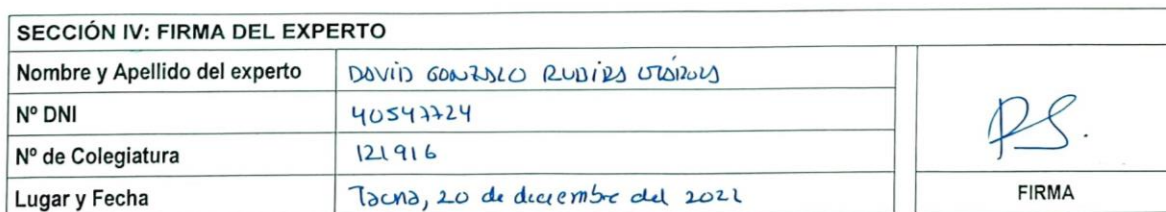 SECCIÓN IV: FIRMA DEL EXPERTO
Nombre y Apellido del experto DAVID GONZALO RUBIRA
Nº DNI 40547724
Nº de Colegiatura 121916
Lugar y Fecha Tacna, 20 de diciembre del 2022
FIRMA